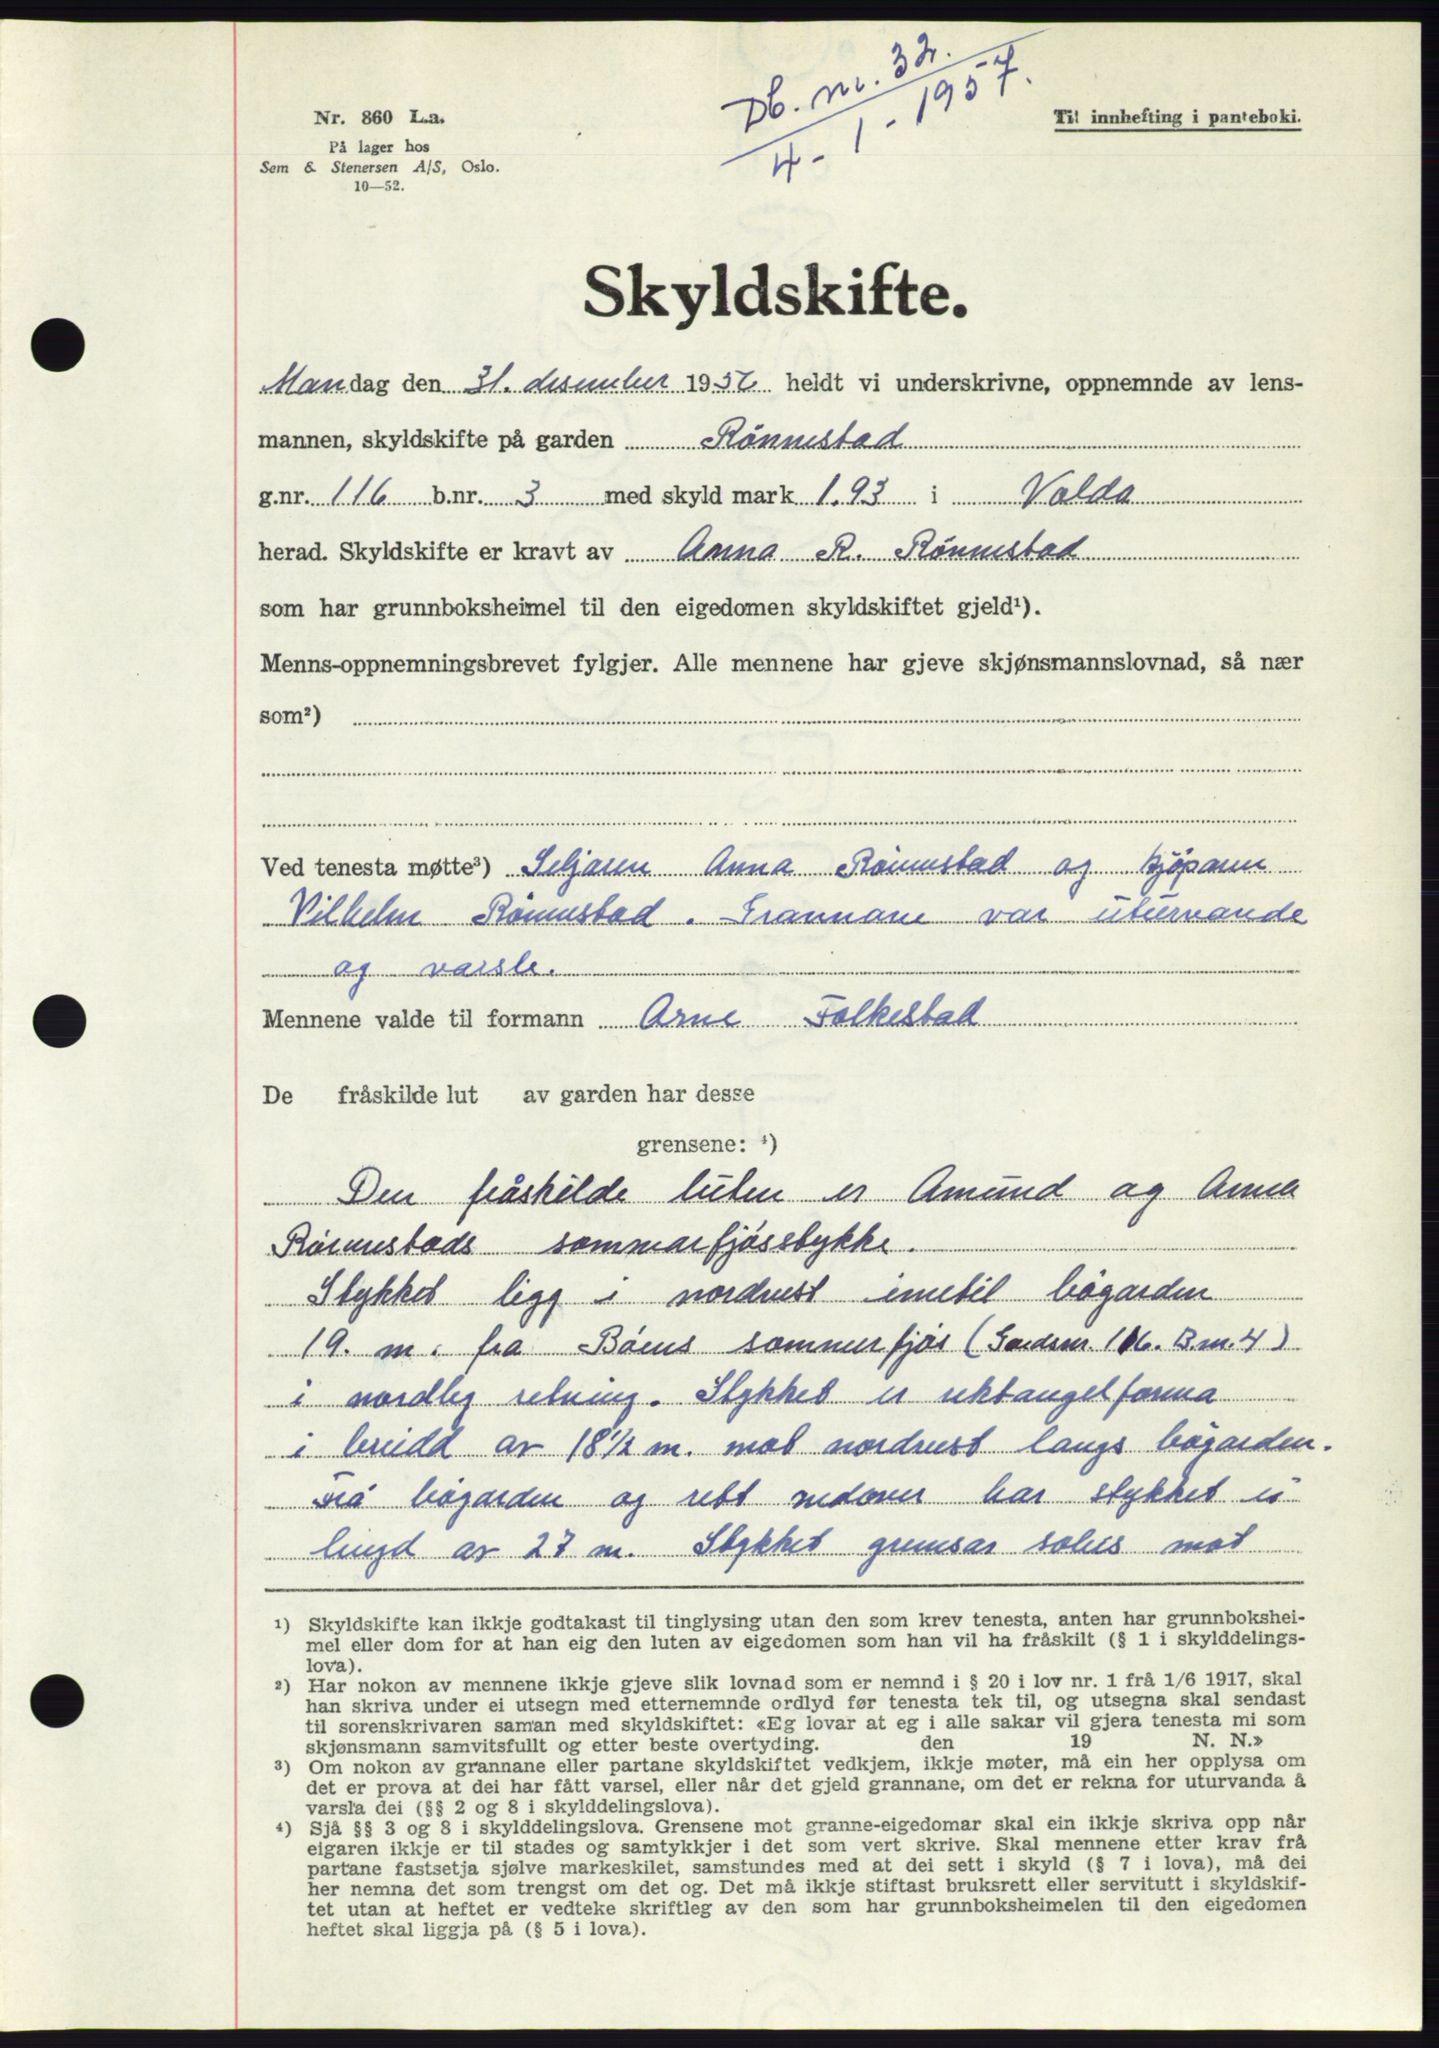 Db. nr. 32.
4 - 1 - 1957.
Nr. 860 L.a.
På lager hos
Sem & Stenersen A/S, Oslo.
10—52.
Til innhefting i panteboki.
Skyldskifte.
Mandag den 31. desember 1956 heldt vi underskrivne, oppnemnde av lens-
mannen, skyldskifte på garden Rönnestad
g.nr. 116 b.nr. 3 med skyld mark 1.93 i Volda
herad. Skyldskifte er kravt av Anna R. Rönnestad
som har grunnboksheimel til den eigedomen skyldskiftet gjeld¹).
Menns-oppnemningsbrevet fylgjer. Alle mennene har gjeve skjønsmannslovnad, så nær
som²)
Ved tenesta møtte³) Seljaren Anna Rönnestad og kjöparen
Vilhelm Rönnestad. Grannane var uturvande
og varsle.
Mennene valde til formann Arne Folkestad
De fråskilde lut av garden har desse
grensene: ⁴)
Den fråskilde luten er Amund og Anna
Rönnestads sommarfjösstykke.
Stykket ligg i nordvest inntil bögarden
19. m. fra Böens sommerfjös (Gardsnr. 116. B.nr. 4)
i nordleg retning. Stykket er rektangelforma
i breidd av 18 1/2 m. mot nordvest langs bögarden.
Frå bögarden og rett nedover har stykket ei
lengd av 27 m. Stykket grensar soleis mot
¹) Skyldskifte kan ikkje godtakast til tinglysing utan den som krev tenesta, anten har grunnbokshei-
mel eller dom for at han eig den luten av eigedomen som han vil ha fråskilt (§ 1 i skylddelings-
lova).
²) Har nokon av mennene ikkje gjeve slik lovnad som er nemnd i § 20 i lov nr. 1 frå 1/6 1917, skal
han skriva under ei utsegn med etternemnde ordlyd før tenesta tek til, og utsegna skal sendast
til sorenskrivaren saman med skyldskiftet: «Eg lovar at eg i alle sakar vil gjera tenesta mi som
skjønsmann samvitsfullt og etter beste overtyding. den 19 N. N.»
³) Om nokon av grannane eller partane skyldskiftet vedkjem, ikkje møter, må ein her opplysa om
det er prova at dei har fått varsel, eller når det gjeld grannane, om det er rekna for uturvanda å
varsla dei (§§ 2 og 8 i skylddelingslova).
⁴) Sjå §§ 3 og 8 i skylddelingslova. Grensene mot granne-eigedomar skal ein ikkje skriva opp når
eigaren ikkje er til stades og samtykkjer i det som vert skrive. Skal mennene etter krav frå
partane fastsetja sjølve markeskilet, samstundes med at dei sett i skyld (§ 7 i lova), må dei
her nemna det som trengst om det og. Det må ikkje stiftast bruksrett eller servitutt i skyldskif-
tet utan at heftet er vedteke skriftleg av den som har grunnboksheimelen til den eigedomen
heftet skal liggja på (§ 5 i lova).